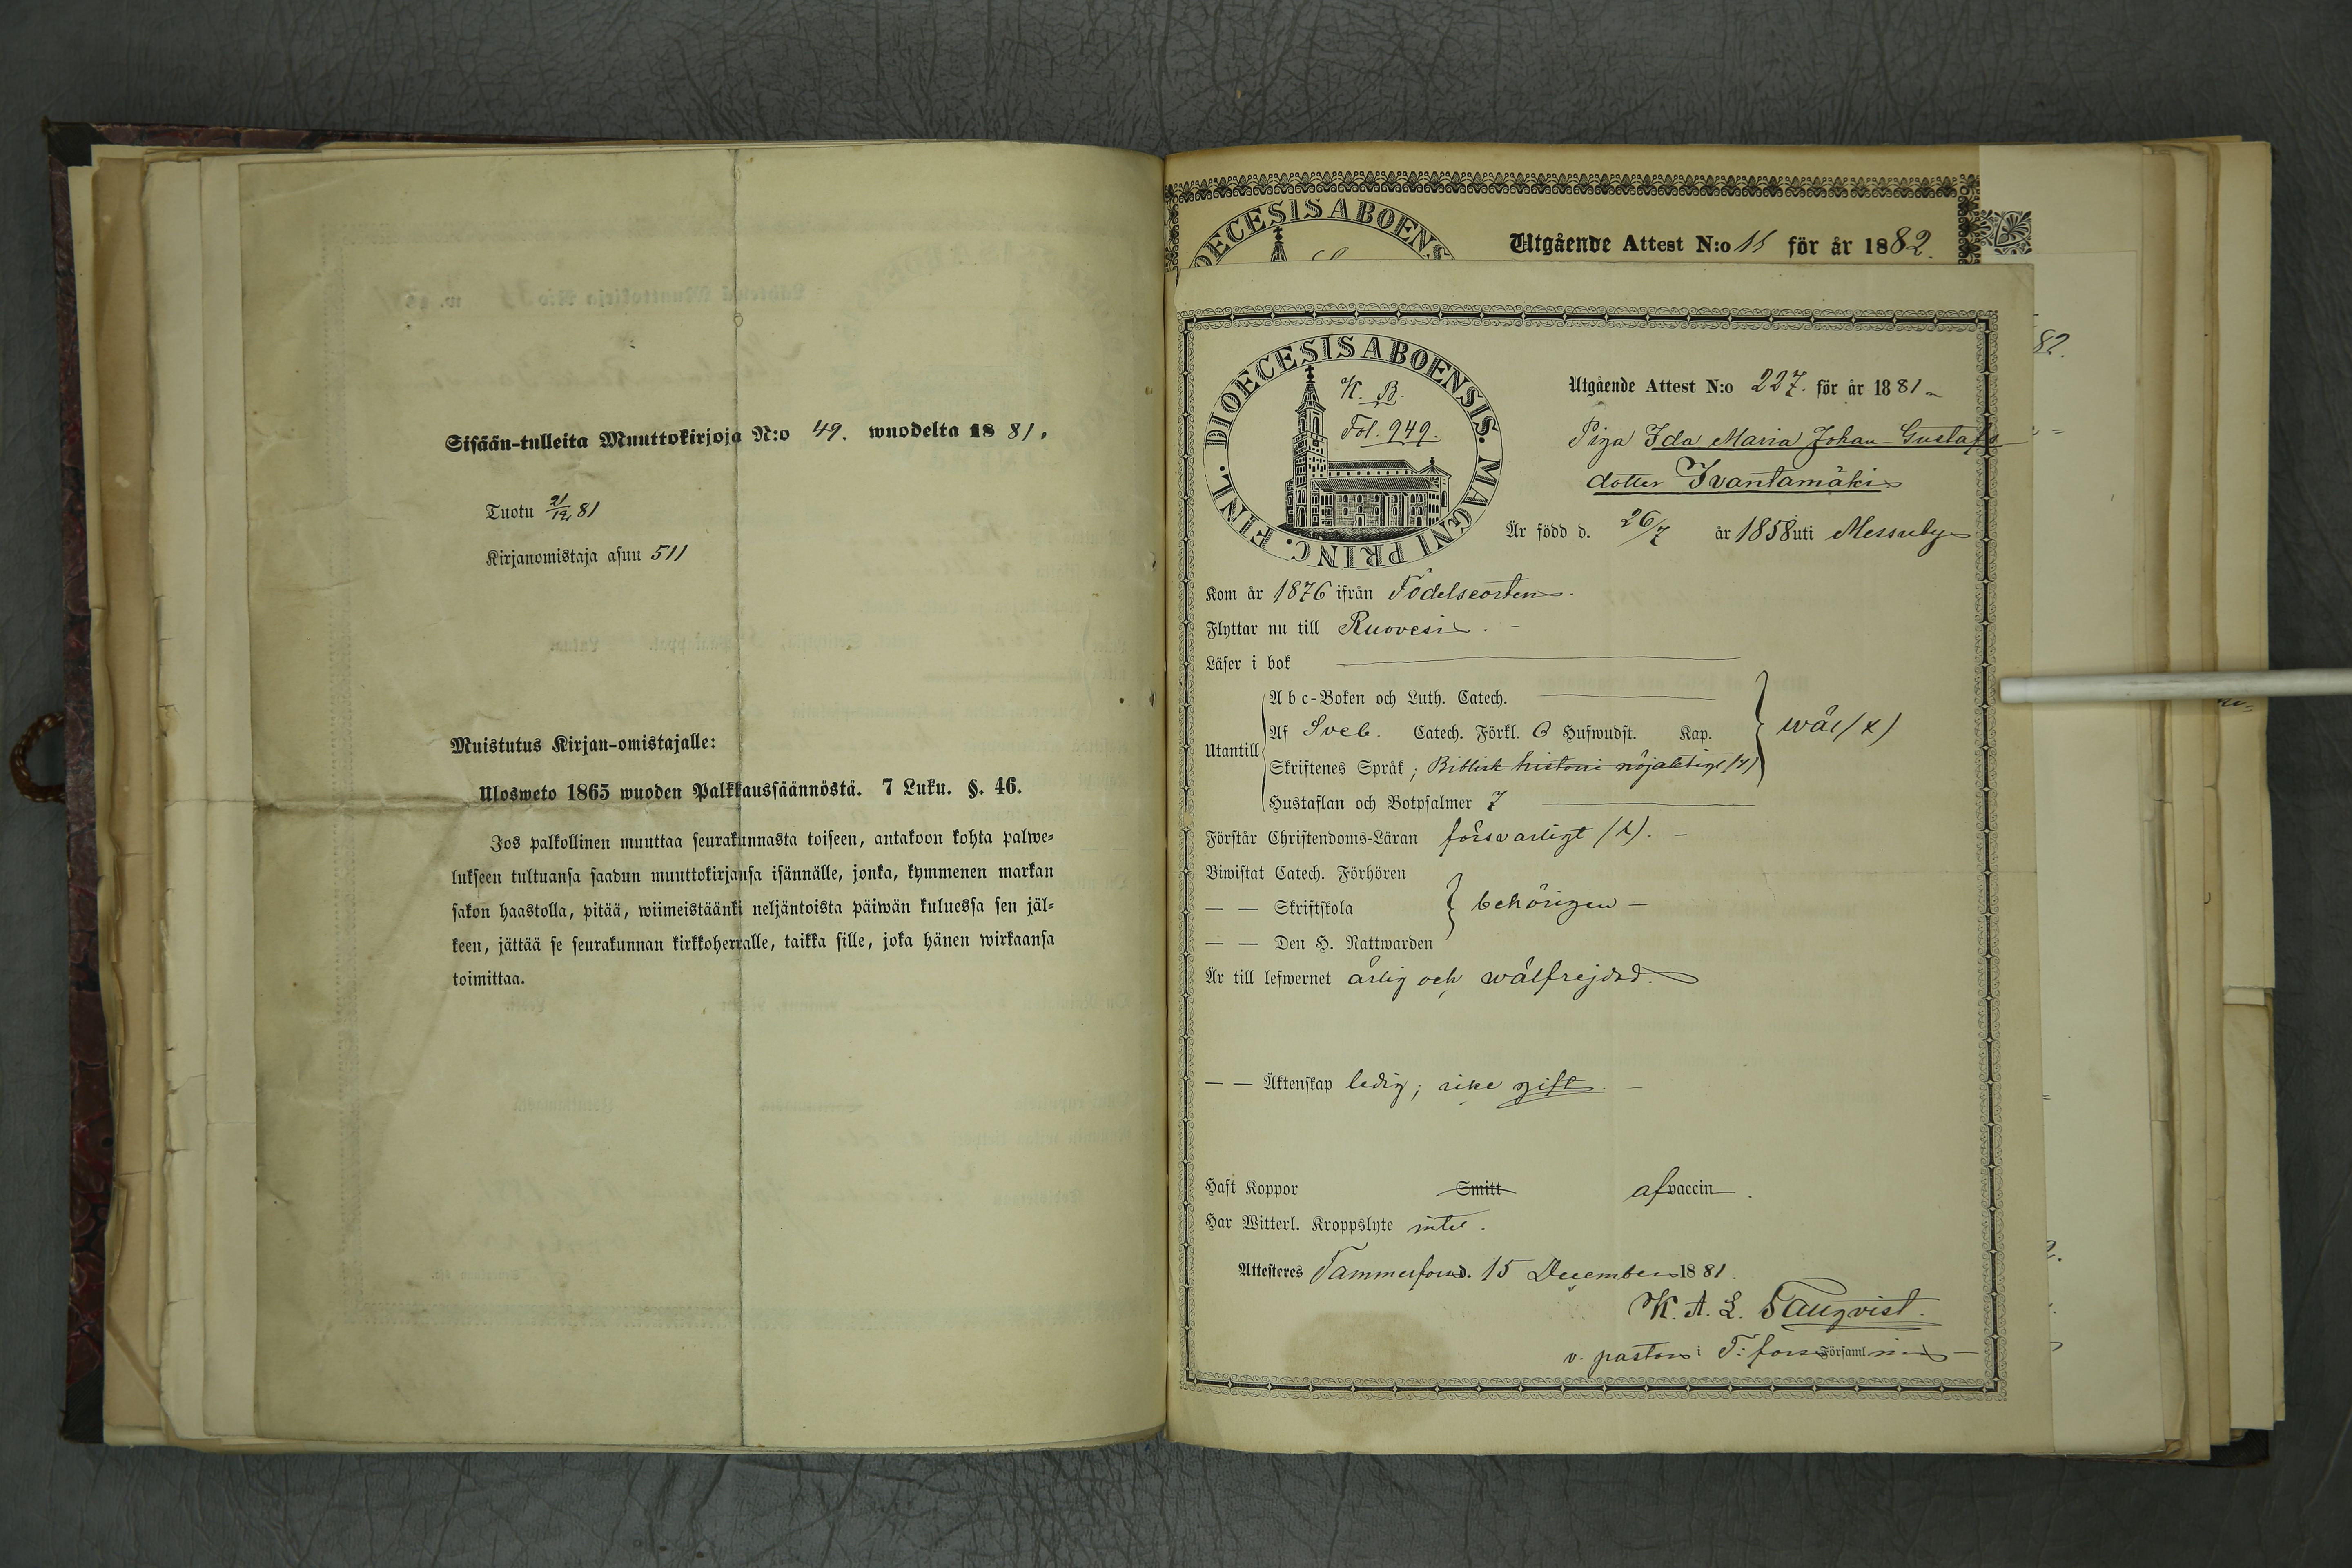 Sisään-tulleita Muuttokirjoja N:o 49. wuodelta 1881.
Tuotu 21/12 81
Kirjanomistaja asuu 511
Muistutus Kirjan-omistajalle:
Ulosweto 1865 wuoden Palkkaussäännöstä. 7 Luku. §. 46.
Jos palkollinen muuttaa seurakunnasta toiseen, antakoon kohta palwe-
lukseen tultuansa saadun muuttokirjansa isännälle, jonka, kymmenen markan
sakon haastolla, pitää, wiimeistäänki neljäntoista päiwän kuluessa sen jäl-
keen, jättää se seurakunnan kirkkoherralle, taikka sille, joka hänen wirkaansa
toimittaa.
DIOECESIS ABOENS
Utgående Attest N:o 11 för år 1882.
82.
DIOECESIS ABOENSIS. MAGNI PRINC. FINL.
K. B.
Fol. 949.
Utgående Attest N:o 227. för år 1881
Piga Ida Maria Johan-Gustafs
dotter Ivantamäki
Är född d. 26/7 år 1858 uti Messuby
Kom år 1876 ifrån Födelseorten.
Flyttar nu till Ruovesi.
Läser i bok
Utantill
Abc-Boken och Luth. Catech.
Af Sveb. Catech. Förkl. 6 Hufwudst. Kap.
wäl (x)
Skriftenes Språk; Biblisk historie nöjaktigt
Hustaflan och Botpsalmer 7
Förstår Christendoms-Läran försvarligt
Biwistat Catech. Förhören
— — Skriftskola
behörigen —
— — Den H. Nattwarden
Är till lefwernet ärlig och wälfrejdad.
— — Äktenskap ledig; icke gift.
Haft Koppor Smitt af vaccin.
Har Witterl. Kroppslyte intet.
Attesteres Tammerfors d. 15 December 1881.
K. A. L. Tauqvist.
v. pastor i T:fors Församling